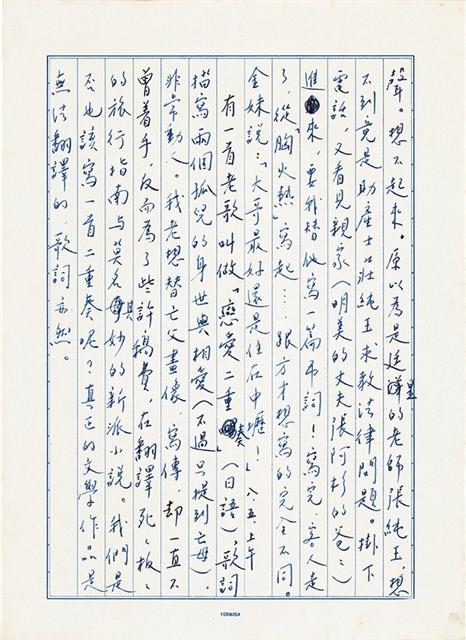 聲。想不起來。原以為是廷暐的老師張純玉，想
不到竟是助產士莊純玉求教法律問題。掛下
電話，又看見親家（明美的丈夫張阿杉的爸爸）
進來，要我替他寫一篇弔詞！寫完，客人走
了，從「胸火熱」寫起……跟方才想寫的完全不同。
金妹說：「大哥最好還是住在中壢！」八五、上午
有一首老歌叫做「戀愛二重奏」（日語），歌詞
描寫兩個孤兒的身世與相愛（不過只提到亡母），
非常動人。我老想替亡父畫像、寫傳，却一直不
曾着手，反而為了些許稿費，在翻譯死死板板
的旅行指南與莫名其妙的新派小說。我們是
否也該寫一首二重奏呢？真正的文學作品是
無法翻譯的，歌詞亦然。
FORMOSA